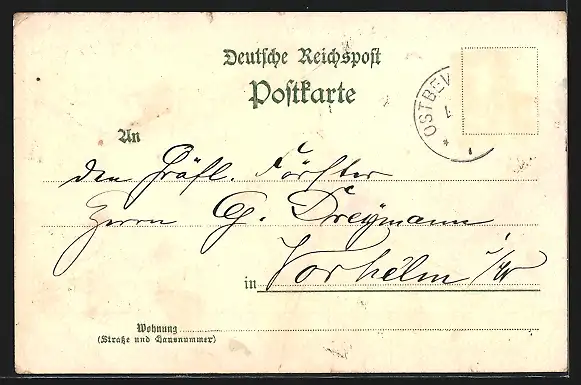 Deutsche Reichspost
Postkarte
* OSTBEV
An
den Gräfl. Förster
Herrn G. Dreymann
in Vorhelm i/W
Wohnung
(Straße und Hausnummer)